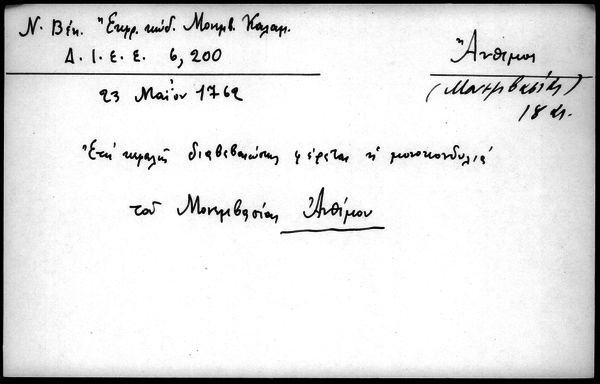 Ν. Βέη. Ἔκφρ. κώδ. Μονεμβ. Καλαμ.
Δ. Ι. Ε. Ε. 6, 200
Ἄνθιμος
(Μονεμβασίας)
18 αι.
23 Μαΐου 1762
Ἐπὶ κεφαλῆς διαβεβαιώσης φέρεται ἡ μονοκονδυλιὰ
τοῦ Μονεμβασίας Ἀνθίμου